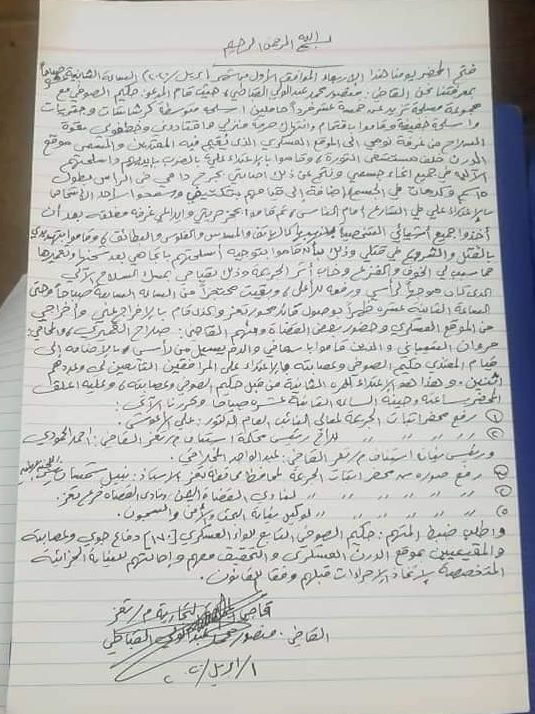 بسم الله الرحمن الرحيم
فتح المحضر يومنا هذا الاربعاء الموافق الأول من شهر ابريل/٢٠٢٠م الساعة الثانية عشر صباحاً
بمعرفتنا نحن القاضي: منصور محمد عبدالولي القباطي، حيث قام المدعو: حكيم الصوفي مع
مجموعة مسلحة تزيد عن خمسة عشر فرداً حاملين اسلحة متوسطة كرشاشات
واسلحة خفيفة وقاموا باقتحام وانتهاك حرمة منزلي واقتيادي وخطفوني بقوة
السلاح من غرفة نومي إلى الموقع العسكري الذي تقيم فيه المعتدين والمسمى موقع
الدرن خلف مستشفى الثورة، وقاموا بالاعتداء علي بالضرب بأيديهم وأسلحتهم
الآلية في جميع انحاء جسمي ونتج عن ذلك اصابتي بجرح دامي في الرأس بطول
١٥سم وكدمات في الجسم إضافة إلى قيامهم وسمحوا لأحد الأشخاص
بالاعتداء علي في الشارع أمام الناس، ثم قاموا بحجز حريتي وإيداعي غرفة مغلقة بعد أن
أخذوا جميع أشيائي الشخصية كالهاتف والمسدس والفلوس والبطائق، وقاموا بتهديدي
بالقتل والشروع في قتلي وذلك بأن قاموا بتوجيه أسلحتهم باتجاهي بعد سحبها وتعميرها
مما سبب لي الخوف والفزع وخاب أثر الجريمة وذلك بقيامي بمسك السلاح الآلي
الذي كان موجهاً لرأسي ورفعه للأعلى، وبقيت محتجزاً من الساعة السابعة صباحاً وحتى
الساعة الثانية عشرة ظهراً بوصول قائد محور تعز والذي قام بالإفراج علي وأخرجني
من الموقع العسكري وحضور بعض القضاة ومنهم القاضي: صلاح، والمحامي:
مروان، والذين قاموا باسعافي والدم يسيل من رأسي، بالاضافة إلى
قيام المعتدي حكيم الصوفي وعصابته بالاعتداء على المرافقين التابعين لي وعددهم
اثنين. وهذا هو الاعتداء للمرة الثانية من قبل حكيم الصوفي وعصابته، وعليه اغلق
المحضر بساعته وحينه الساعة الثانية عشرة صباحاً وقررنا الآتي:
① رفع محضر اثبات الجريمة لمعالي النائب العام الدكتور: علي الأعوش.
② " " " " للأخ رئيس محكمة استئناف م/تعز القاضي: أحمد
ورئيس نيابة استئناف م/تعز القاضي: عبدالواحد
③ رفع صورة من محضر اثبات الجريمة لمحافظ محافظة تعز الاستاذ: نبيل شمسان
④ " " " " " " لنادي القضاة اليمن، ونادي القضاة فرع تعز.
⑤ " " " " " " لوكيل نيابة البحث والأمن والسجون.
وأطلب ضبط المتهم: حكيم الصوفي التابع للواء العسكري [١٧٠] دفاع جوي وعصابته
والمقيمين بموقع الدرن العسكري، والتحقيق معهم وإحالتهم للنيابة الجزائية
المتخصصة لإتخاذ الإجراءات قبلهم وفقاً للقانون.
قاضي التجارية م/تعز
القاضي: منصور محمد عبدالولي القباطي
١/ابريل/٢٠٢٠